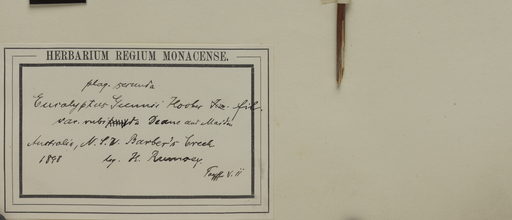 HERBARIUM REGIUM MONACENSE.
plag. secunda
Eucalyptus Gunnii Hooker fil.
var. Deane and Maiden
Australia, N. S. W. Barber's Creek
1898 leg. H. Rumsey